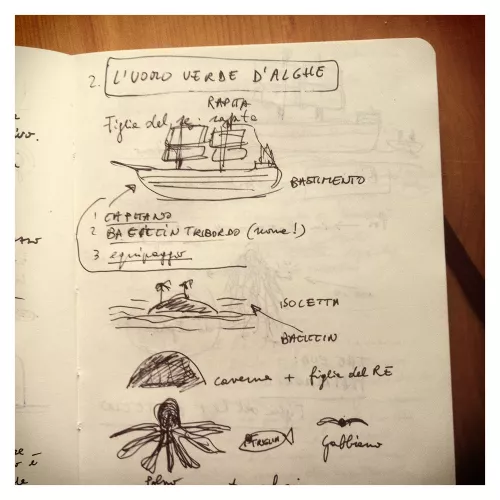 2. L'UOMO VERDE D'ALGHE
RAPITA
Figlia del Re: rapita
BASTIMENTO
1 CAPITANO
2 BACICCIN TRIBORDO (nome!)
3 equipaggio
ISOLETTA
BACICCIN
caverna + figlia del RE
TRIGLIA
Gabbiano
Polpo